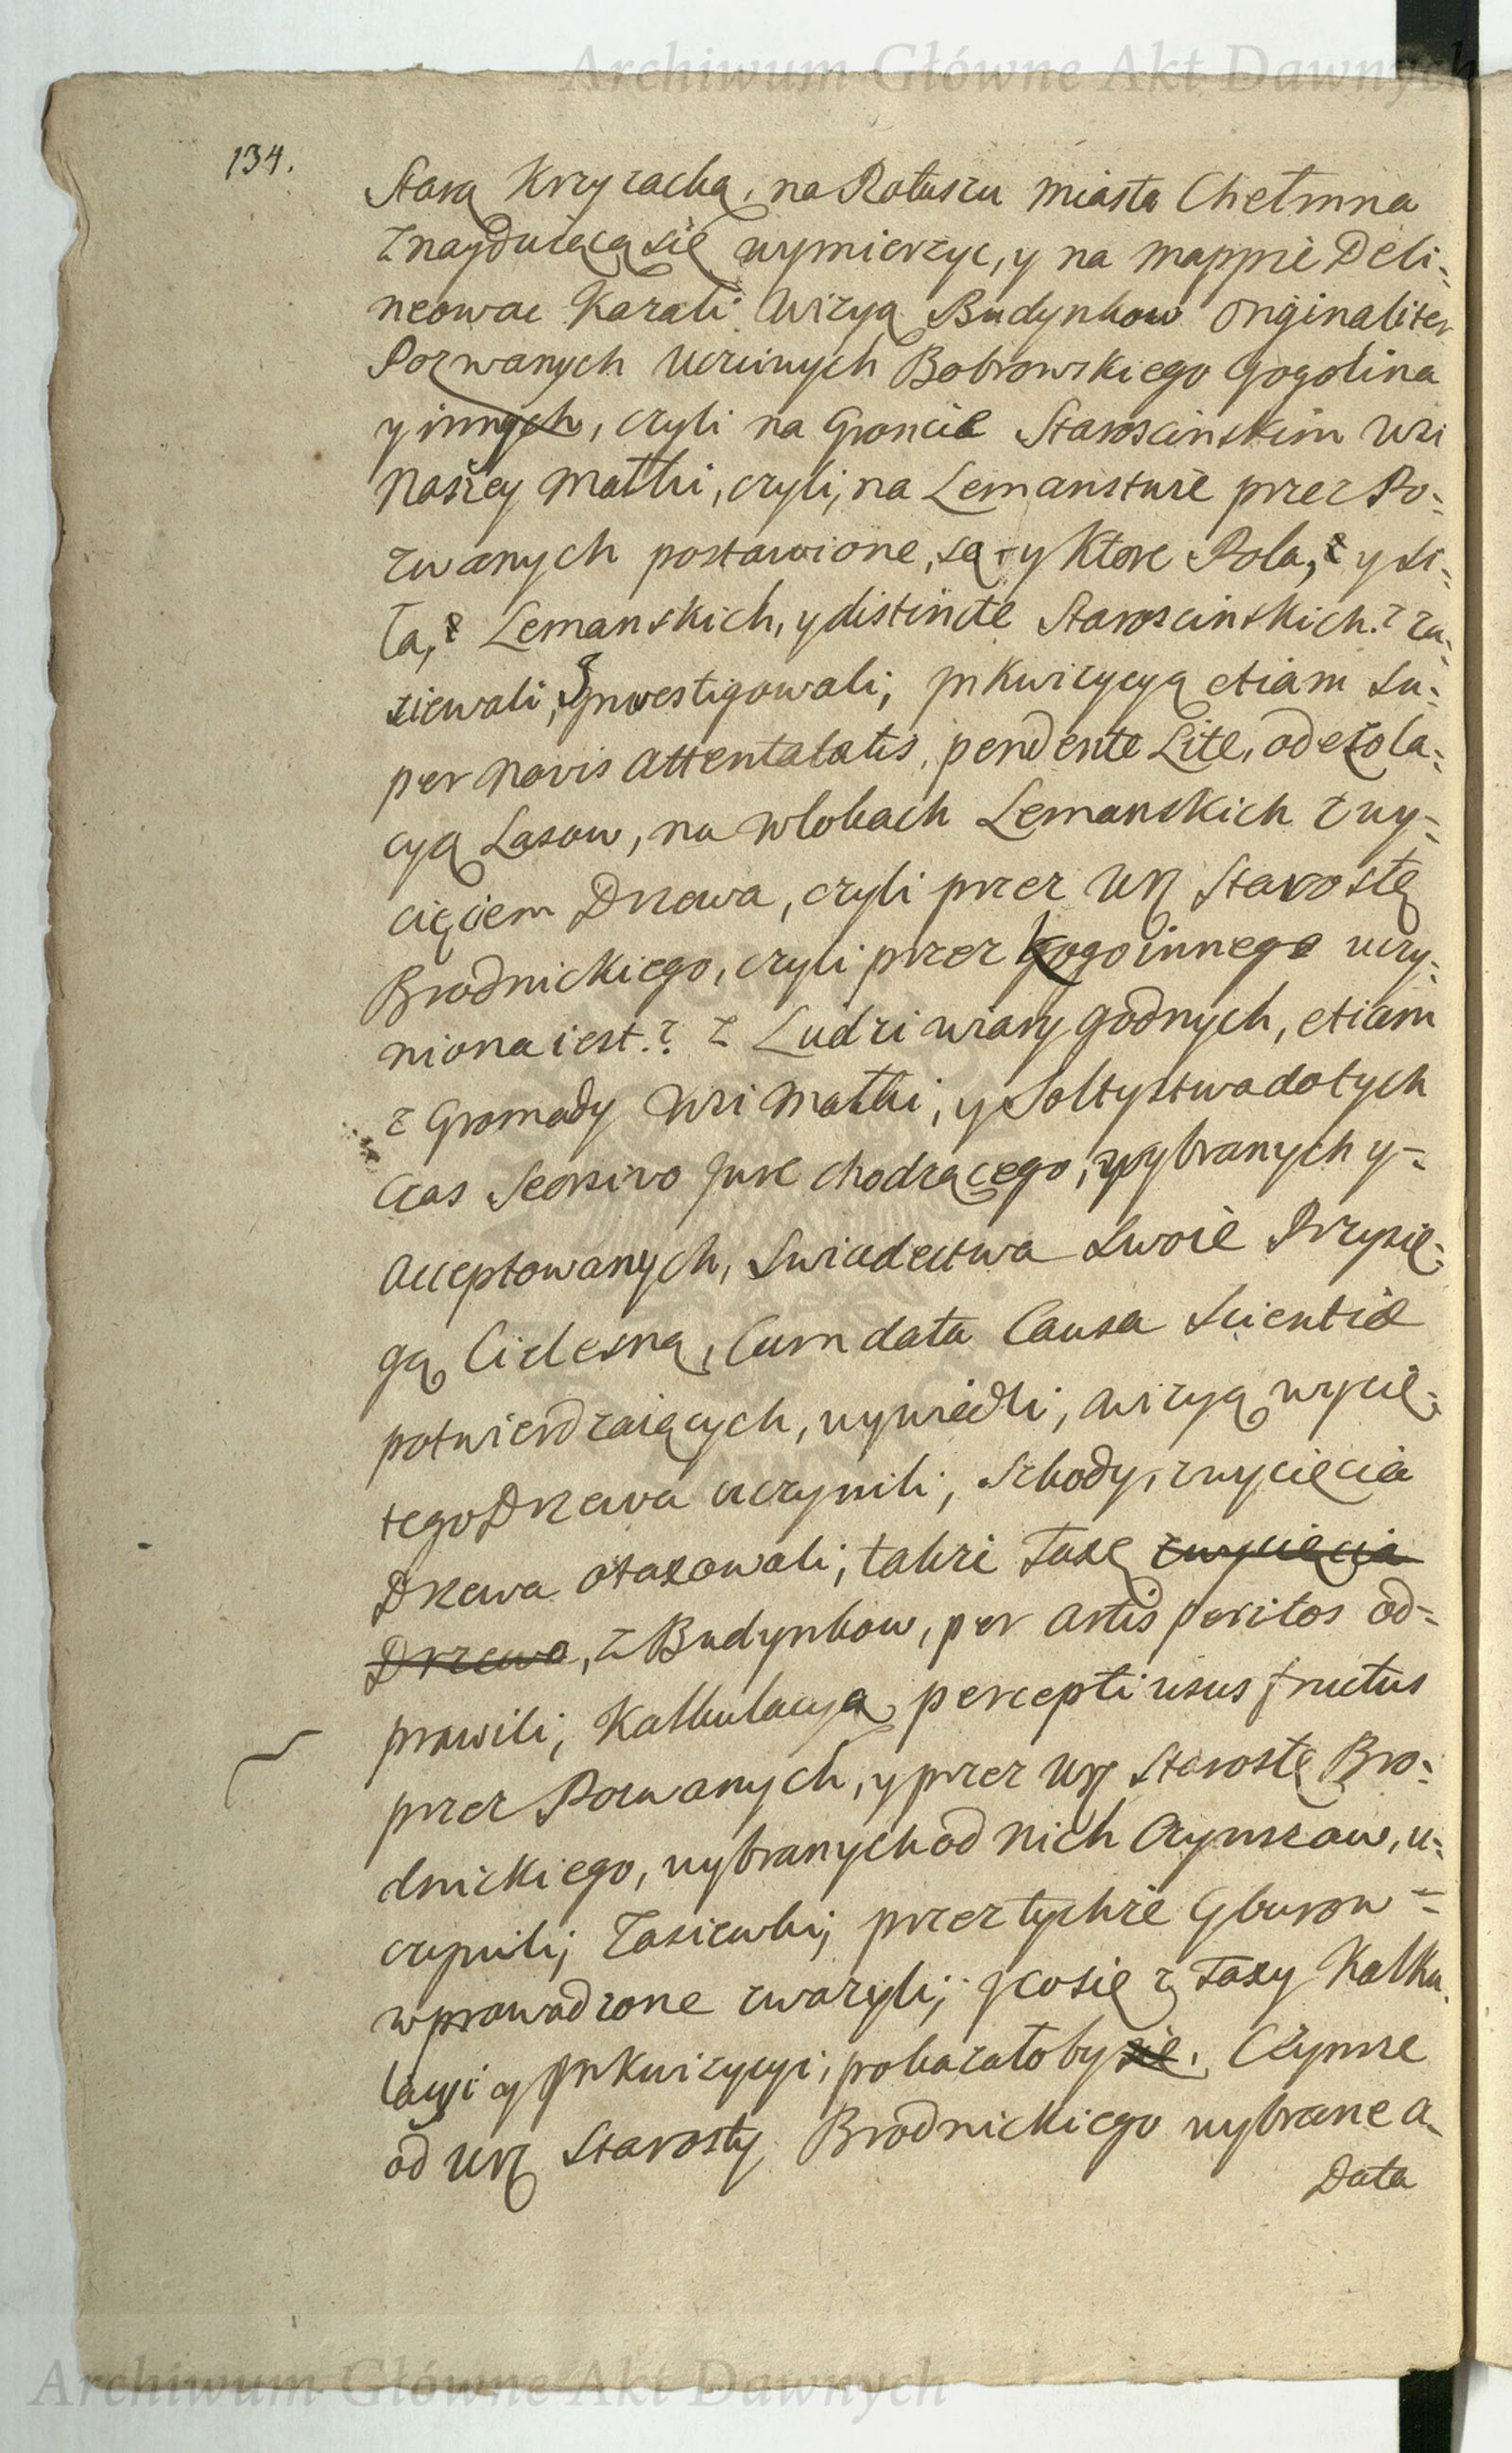 Archiwum Główne Akt Dawnych
134.
Starą Krzyzacką, na Ratuszu Miasta Chełmna
Znayduiącą się wymierzyc, y na mappie Deli-
neowac kazali Wizyą Budynkow originaliter
Pozwanych Uczciwych Bobrowskiego Gogolina
y innych, czyli na Gruncie Staroscinskim Wsi
Naszey Mathi, czyli, na Lemanstwie przez Po-
zwanych postawione, są, y Ktore Pola, y Si-
ła, Lemanskich, y distincte Staroscinskich? za-
siewali, Inwestigowali; Inkwizycyą etiam Su-
per Novis Attentatatis, pendente Lite, o dezola-
cyą Lasow, na Wlokach Lemanskich z wy-
cięciem Drzewa, czyli przez Ur. Starostę
Brodnickiego, czyli przez kogo innego uczy-
niona iest.? Z Ludzi wiary godnych, etiam
z Gromady Wsi Mathi, y Soltystwa dotych
czas Seorsivo Jure chodzącego, wybranych y
Acceptowanych, Swiadectwa Swoie Przysię-
gą Cielesną, Cum data Causa Scientiæ
potwierdzaiących, wywiedli, Wizyą wycię-
tego Drzewa uczynili, Szkody, z wycięcia
Drzewa otaxowali; takze Taxę z wycięcia
Drzewa, z Budynkow, per artis peritos od-
prawili; Kalkulacyą percepti usus fructus
przez Pozwanych, y przez Ur. Starostę Bro-
dnickiego, wybranych od Nich Czynszow, u-
czynili; Zasiewki, przez tychze Gburow
wprowadzone zwazyli; Jco się z Taxy Kalku-
lacyi y Inkwizycyi, pokazałoby się. Czynsze
od Ur. Starosty Brodnickiego wybrane a
Data
Archiwum Główne Akt Dawnych